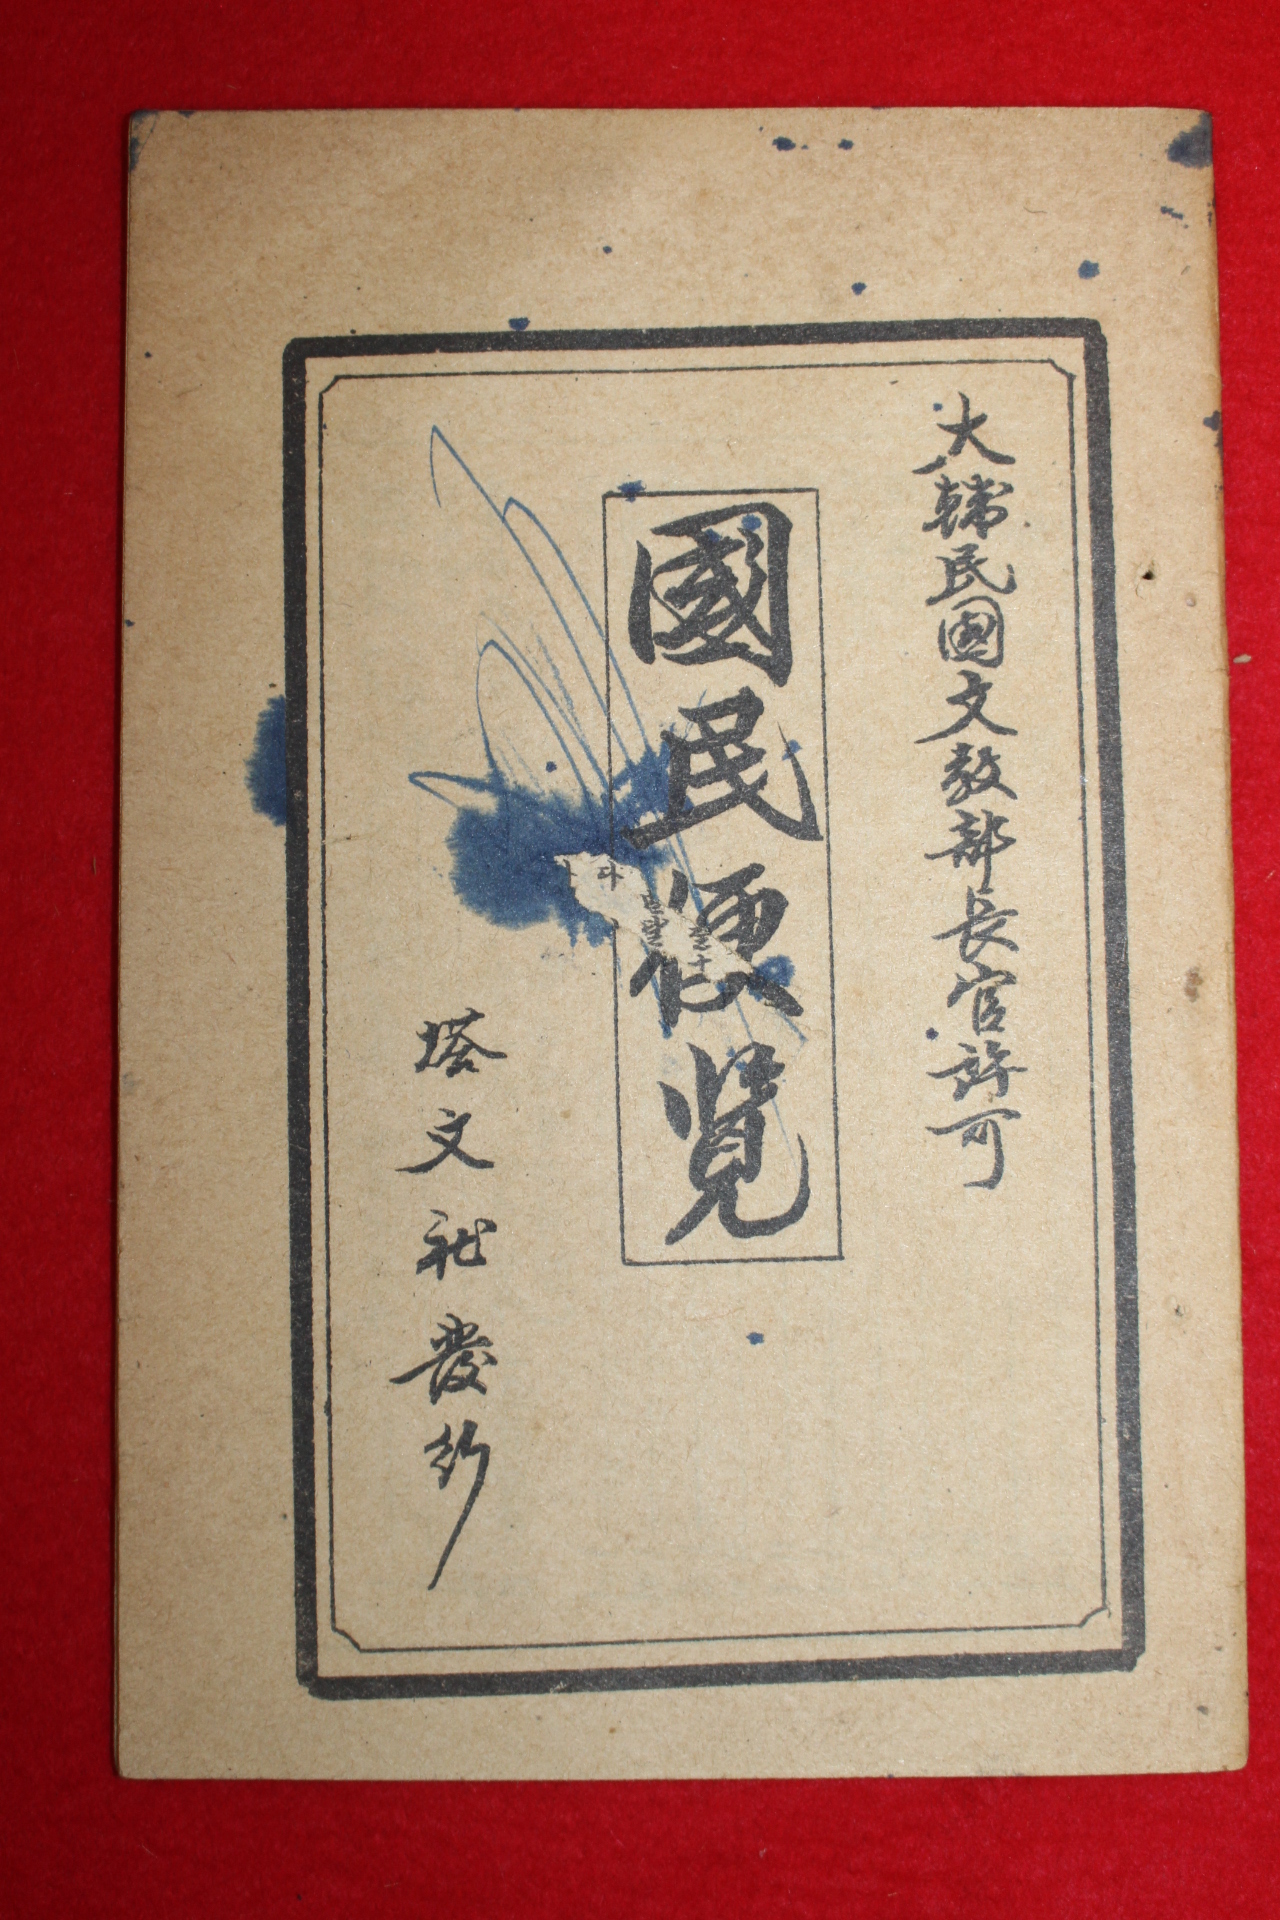 大韓民国文教部長官許可
國民便覽
塔文社發行